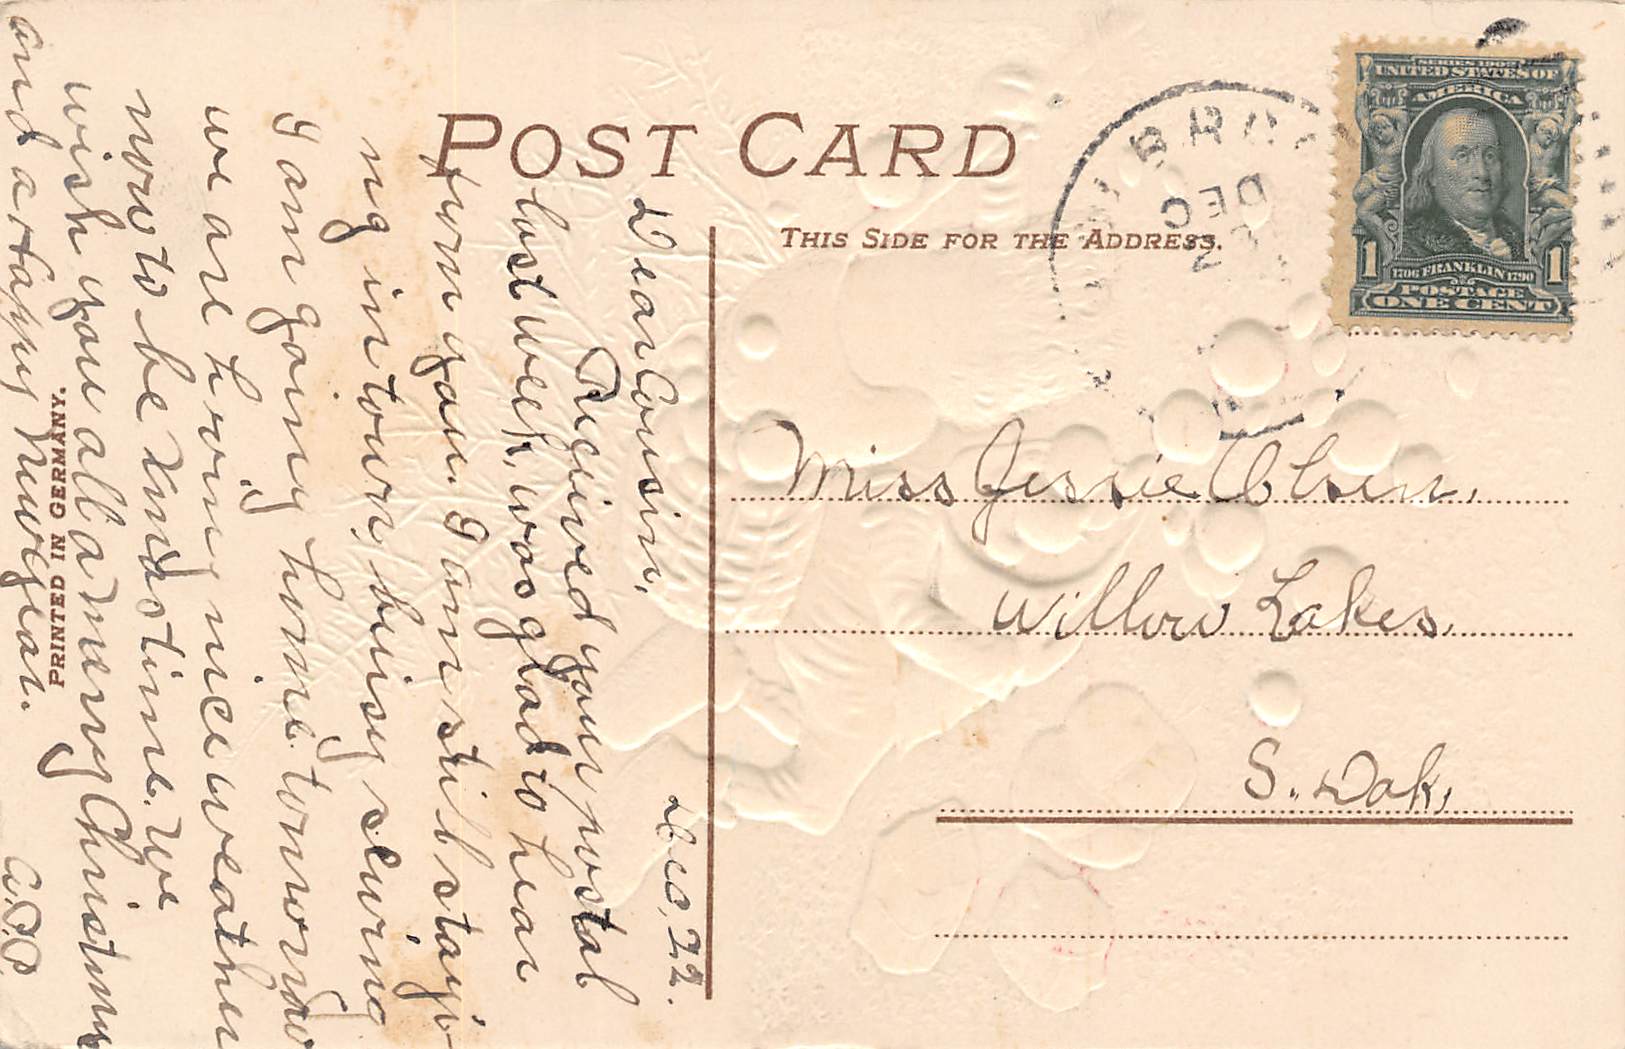 POST CARD
THIS SIDE FOR THE ADDRESS.
SERIES 1902
UNITED STATES OF
AMERICA
1706 FRANKLIN 1790
1 1
POSTAGE
ONE CENT
DEC
Miss Jessie Olsen,
Willow Lakes,
S. Dak,
PRINTED IN GERMANY.
Dec, 22.
Dear Cousin,
Recieved your postal
last week, was glad to hear
from you. I am still stayi-
ng in town, beisy sewing
I am going home tomorrow
we are having nice weather
now to be Xmastime. We
wish you all a merry Christmas
and a Happy New Year.
A.P.